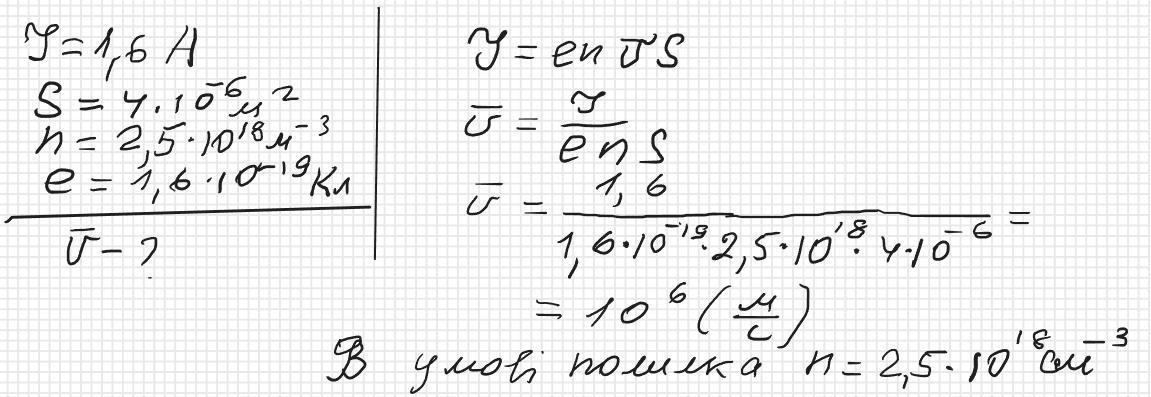 I = 1,6 А
S = 4·10⁻⁶ м²
n = 2,5·10¹⁸ м⁻³
e = 1,6·10⁻¹⁹ Кл
v̅ - ?
I = en v̅ S
v̅ = I / enS
v̅ = 1,6 / 1,6·10⁻¹⁹·2,5·10¹⁸·4·10⁻⁶ =
= 10⁶ (м/с)
В умові помилка n = 2,5·10¹⁸ см⁻³